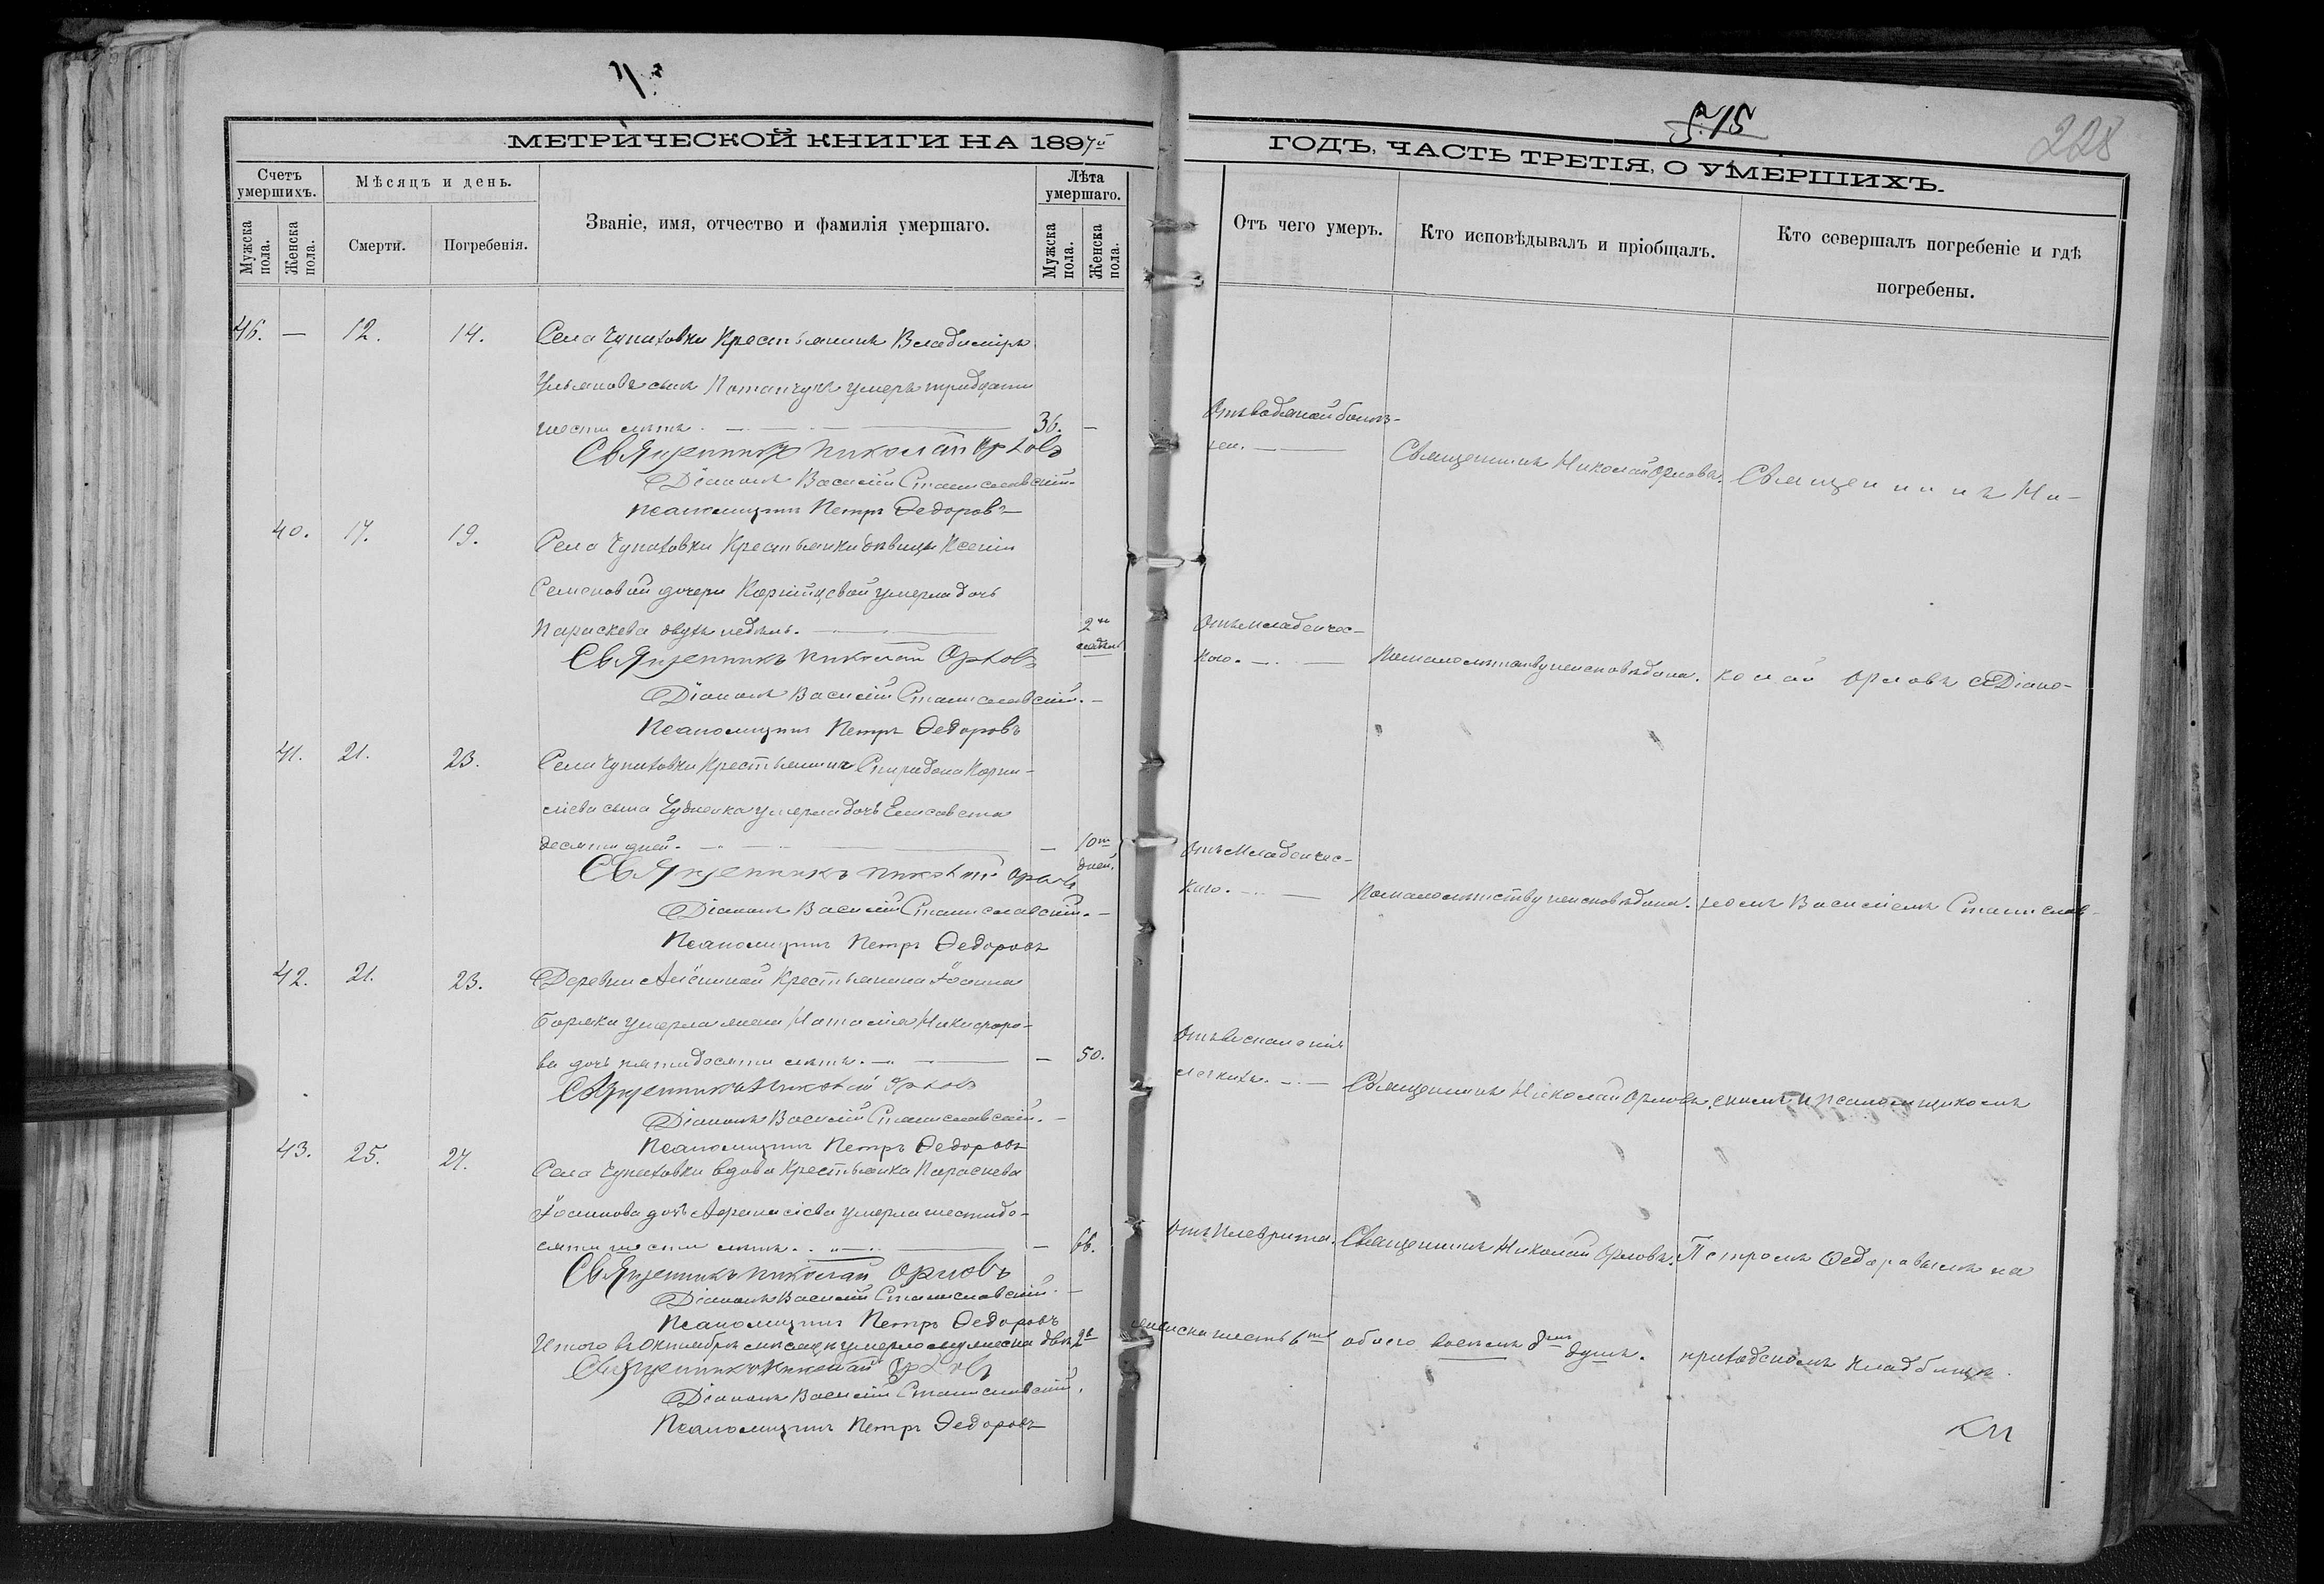 МЕТРИЧЕСКОЙ КНИГИ НА 1897й
Счетъ умершихъ.
Мѣсяцъ и день.
Званіе, имя, отчество и фамилія умершаго.
Лѣта умершаго.
Мужска пола.
Женска пола.
Смерти.
Погребенія.
Мужска пола.
Женска пола.
46. — 12. 14. Села Чупаховки Крестьянинъ Владиміръ
Ульяновъ сынъ Потапчукъ умеръ тридцати
шести лѣтъ. — 36. —
Священникъ Николай Орловъ
Діаконъ Василій Станиславскій.
Псаломщикъ Петръ Федоровъ
40. 17. 19. Села Чупаховки Крестьянки дѣвицы Ксеніи
Семеновой дочери умерла дочь
Параскева двухъ недѣль. — 2хъ
недѣль
Священникъ Николай Орловъ
Діаконъ Василій Станиславскій. —
Псаломщикъ Петръ Федоровъ
41. 21. 23. Села Чупаховки Крестьянина Спиридона Корни-
ліева сына умерла дочь Елисавета
десяти дней. — — 10ти
дней.
Священникъ Николай Орловъ
Діаконъ Василій Станиславскій. —
Псаломщикъ Петръ Федоровъ
42. 21. 23. Деревни Крестьянина Іоанна
умерла жена Наталія Никифоро-
ва дочь пятидесяти лѣтъ. — — 50.
Священникъ Николай Орловъ
Діаконъ Василій Станиславскій. —
Псаломщикъ Петръ Федоровъ
43. 25. 27. Села Чупаховки вдова Крестьянка Параскева
Іоаннова дочь умерла шестиде-
сяти шести лѣтъ. — — 66.
Священникъ Николай Орловъ
Діаконъ Василій Станиславскій. —
Псаломщикъ Петръ Федоровъ
Итого въ Октябрѣ мѣсяцѣ умерло мужеска два 2а
Священникъ Николай Орловъ
Діаконъ Василій Станиславскій.
Псаломщикъ Петръ Федоровъ
515
228
ГОДЪ, ЧАСТЬ ТРЕТІЯ, О УМЕРШИХЪ.
Отъ чего умеръ.
Кто исповѣдывалъ и пріобщалъ.
Кто совершалъ погребеніе и гдѣ
погребены.
Отъ водяной болѣз-
ни. — Священникъ Николай Орловъ. Священникъ Ни-
Отъ младенчес-
каго. — По малолѣтству неисповѣдана. колай Орловъ съ Діако-
Отъ младенчес-
каго. — По малолѣтству неисповѣдана. номъ Василіемъ Станислав-
Отъ воспаленія
легкихъ. — Священникъ Николай Орловъ. скимъ и псаломщикомъ
Отъ плеврита. Священникъ Николай Орловъ. Петромъ Федоровымъ на
женска шесть 6ть обоего восемь 8мь душъ. приходскомъ кладбищѣ.